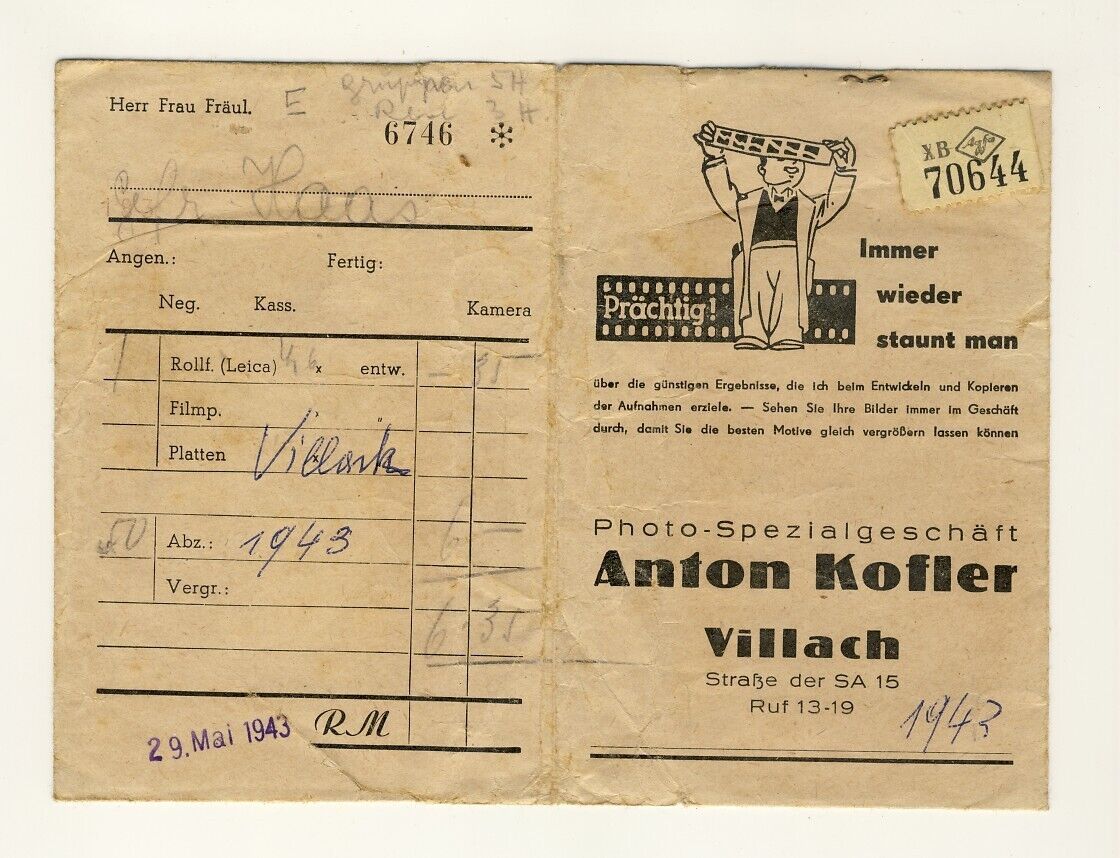 Herr Frau Fräul. E gruppen 5 H
3 H
6746 *
Haas
Angen.: Fertig:
Neg. Kass. Kamera
1 Rollf. (Leica) x entw. — 35
Filmp. "
Platten
50 Abz.: 1943 6 —
Vergr.:
6 35
29. Mai 1943 RM
XB Agfa
70644
Prächtig!
Immer
wieder
staunt man
über die günstigen Ergebnisse, die ich beim Entwickeln und Kopieren
der Aufnahmen erziele. — Sehen Sie Ihre Bilder immer im Geschäft
durch, damit Sie die besten Motive gleich vergrößern lassen können
Photo-Spezialgeschäft
Anton Kofler
Villach
Straße der SA 15
Ruf 13-19
1943